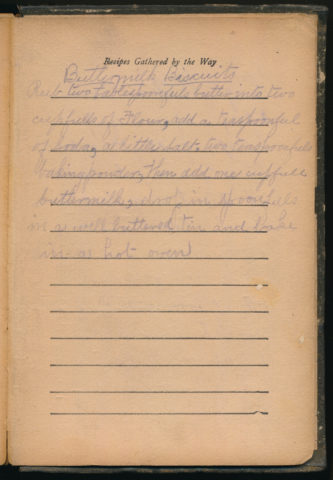 Recipes Gathered by the Way
Buttermilk Biscuits
Rub two tablespoonfuls butter into two
cupfulls of Flour, add a teaspoonful
of soda, a little salt, two teaspoonfuls
baking powder, then add one cupfull
buttermilk, drop in spoonfulls
in a well buttered tin and bake
in a hot oven